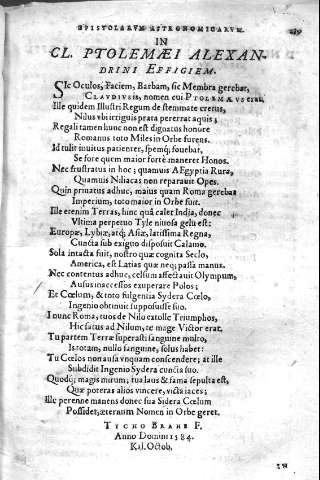 EPISTOLARVM ASTRONOMICARVM. 239
IN
CL. PTOLEMÆI ALEXAN-
DRINI EFFIGIEM.
SIc Oculos, Faciem, Barbam, sic Membra gerebat,
CLAVDIVS is, nomen cui PTOLEMÆVS erat,
Ille quidem Illustri Regum de stemmate cretus,
Nilus vbi irriguis prata pererrat aquis;
Regali tamen hunc non est dignatus honore
Romanus toto Miles in Orbe furens.
Id tulit inuitus patienter, spemq; fouebat,
Se fore quem maior fortè maneret Honos.
Nec frustratus in hoc; quamuis AEgyptia Rura,
Quamuis Niliacas non reparauit Opes.
Quin priuatus adhuc, maius quam Roma gerebat
Imperium, toto maior in Orbe fuit.
Ille etenim Terras, hinc quà calet India, donec
Vltima perpetuo Tyle niuosa gelu est:
Europæ, Lybiæ, atq; Asiæ, latissima Regna,
Cuncta sub exiguo disposuit Calamo.
Sola intacta fuit, nostro quæ cognita Seclo,
America, est Latias quæ neq; passa manus.
Nec contentus adhuc, celsum affectauit Olympum,
Ausus inaccessos exuperare Polos;
Et Cœlum, & toto fulgentia Sydera Cœlo,
Ingenio obtinuit supposuisse suo.
I nunc Roma, tuos de Nilo extolle Triumphos,
Hic satus ad Nilum, te mage Victor erat.
Tu partem Terræ superasti sanguine multo,
Is totam, nullo sanguine, solus habet:
Tu Cœlos non ausa vnquam conscendere; at ille
Subdidit Ingenio Sydera cuncta suo.
Quodq; magis mirum, tua laus & fama sepulta est,
Quæ poteras alios vincere, victa iaces;
Ille perenne manens donec sua Sidera Cœlum
Possidet, æternum Nomen in Orbe geret.
TYCHO BRAHE F.
Anno Domini 1584.
Kal. Octob.
IN